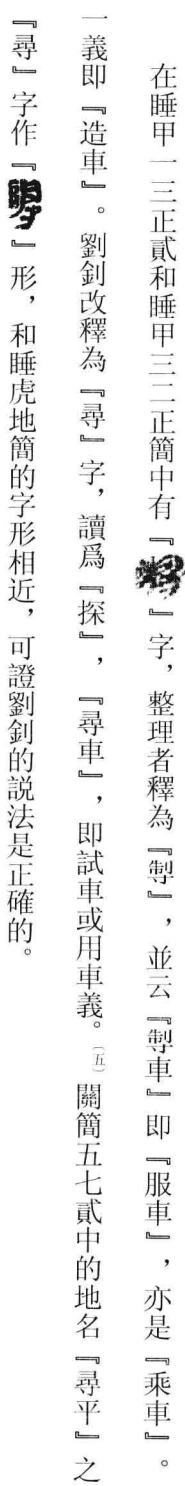 在睡甲一三正貳和睡甲三二正簡中有『』字，整理者釋為『』，並云『車』即『服車』，亦是『乘車』。
一義即『造車』。劉釗改釋為『尋』字，讀爲『探』，『尋車』，即試車或用車義。〔五〕關簡五七貳中的地名『尋平』之
『尋』字作『』形，和睡虎地簡的字形相近，可證劉釗的説法是正確的。